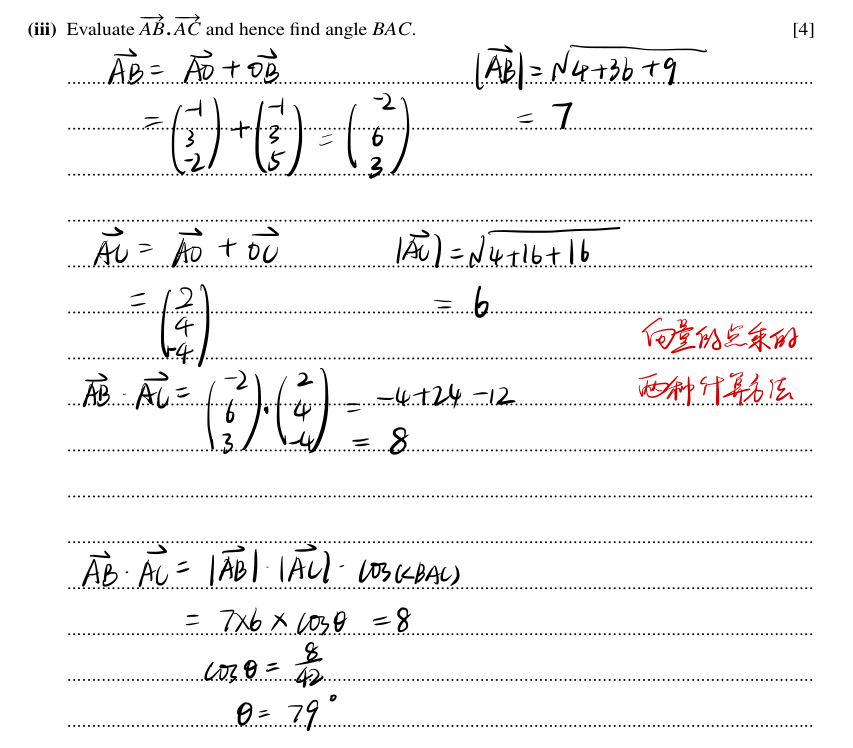 (iii) Evaluate \overrightarrow{AB}.\overrightarrow{AC} and hence find angle BAC. [4]
\overrightarrow{AB} = \overrightarrow{AO} + \overrightarrow{OB} |\overrightarrow{AB}| = √(4+36+9)
= (-1, 3, -2) + (-1, 3, 5) = (-2, 6, 3) = 7
\overrightarrow{AC} = \overrightarrow{AO} + \overrightarrow{OC} |\overrightarrow{AC}| = √(4+16+16)
= (2, 4, -4) = 6
向量的点乘的
两种计算方法
\overrightarrow{AB} · \overrightarrow{AC} = (-2, 6, 3) · (2, 4, -4) = -4+24-12
= 8
\overrightarrow{AB} · \overrightarrow{AC} = |\overrightarrow{AB}| · |\overrightarrow{AC}| · cos(<BAC)
= 7×6 × cosθ = 8
cosθ = 8/42
θ = 79°